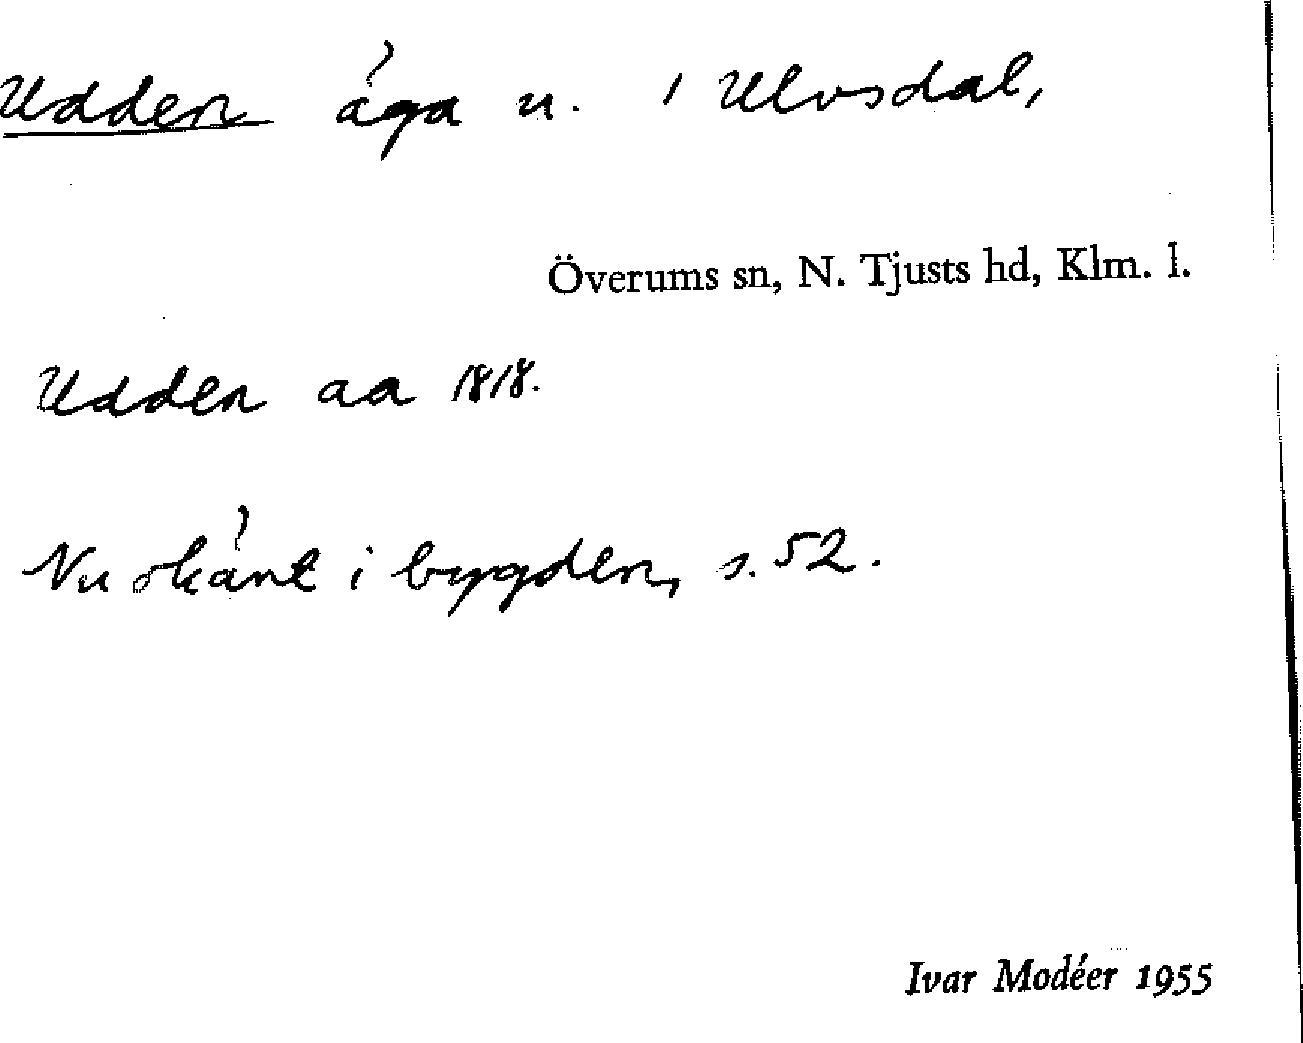 Udden äga u. 1 Ulvsdal,
Överums sn, N. Tjusts hd, Klm. l.
Udden aa 1818.
Nu okänt i bygden, s. 52.
Ivar Modéer 1955